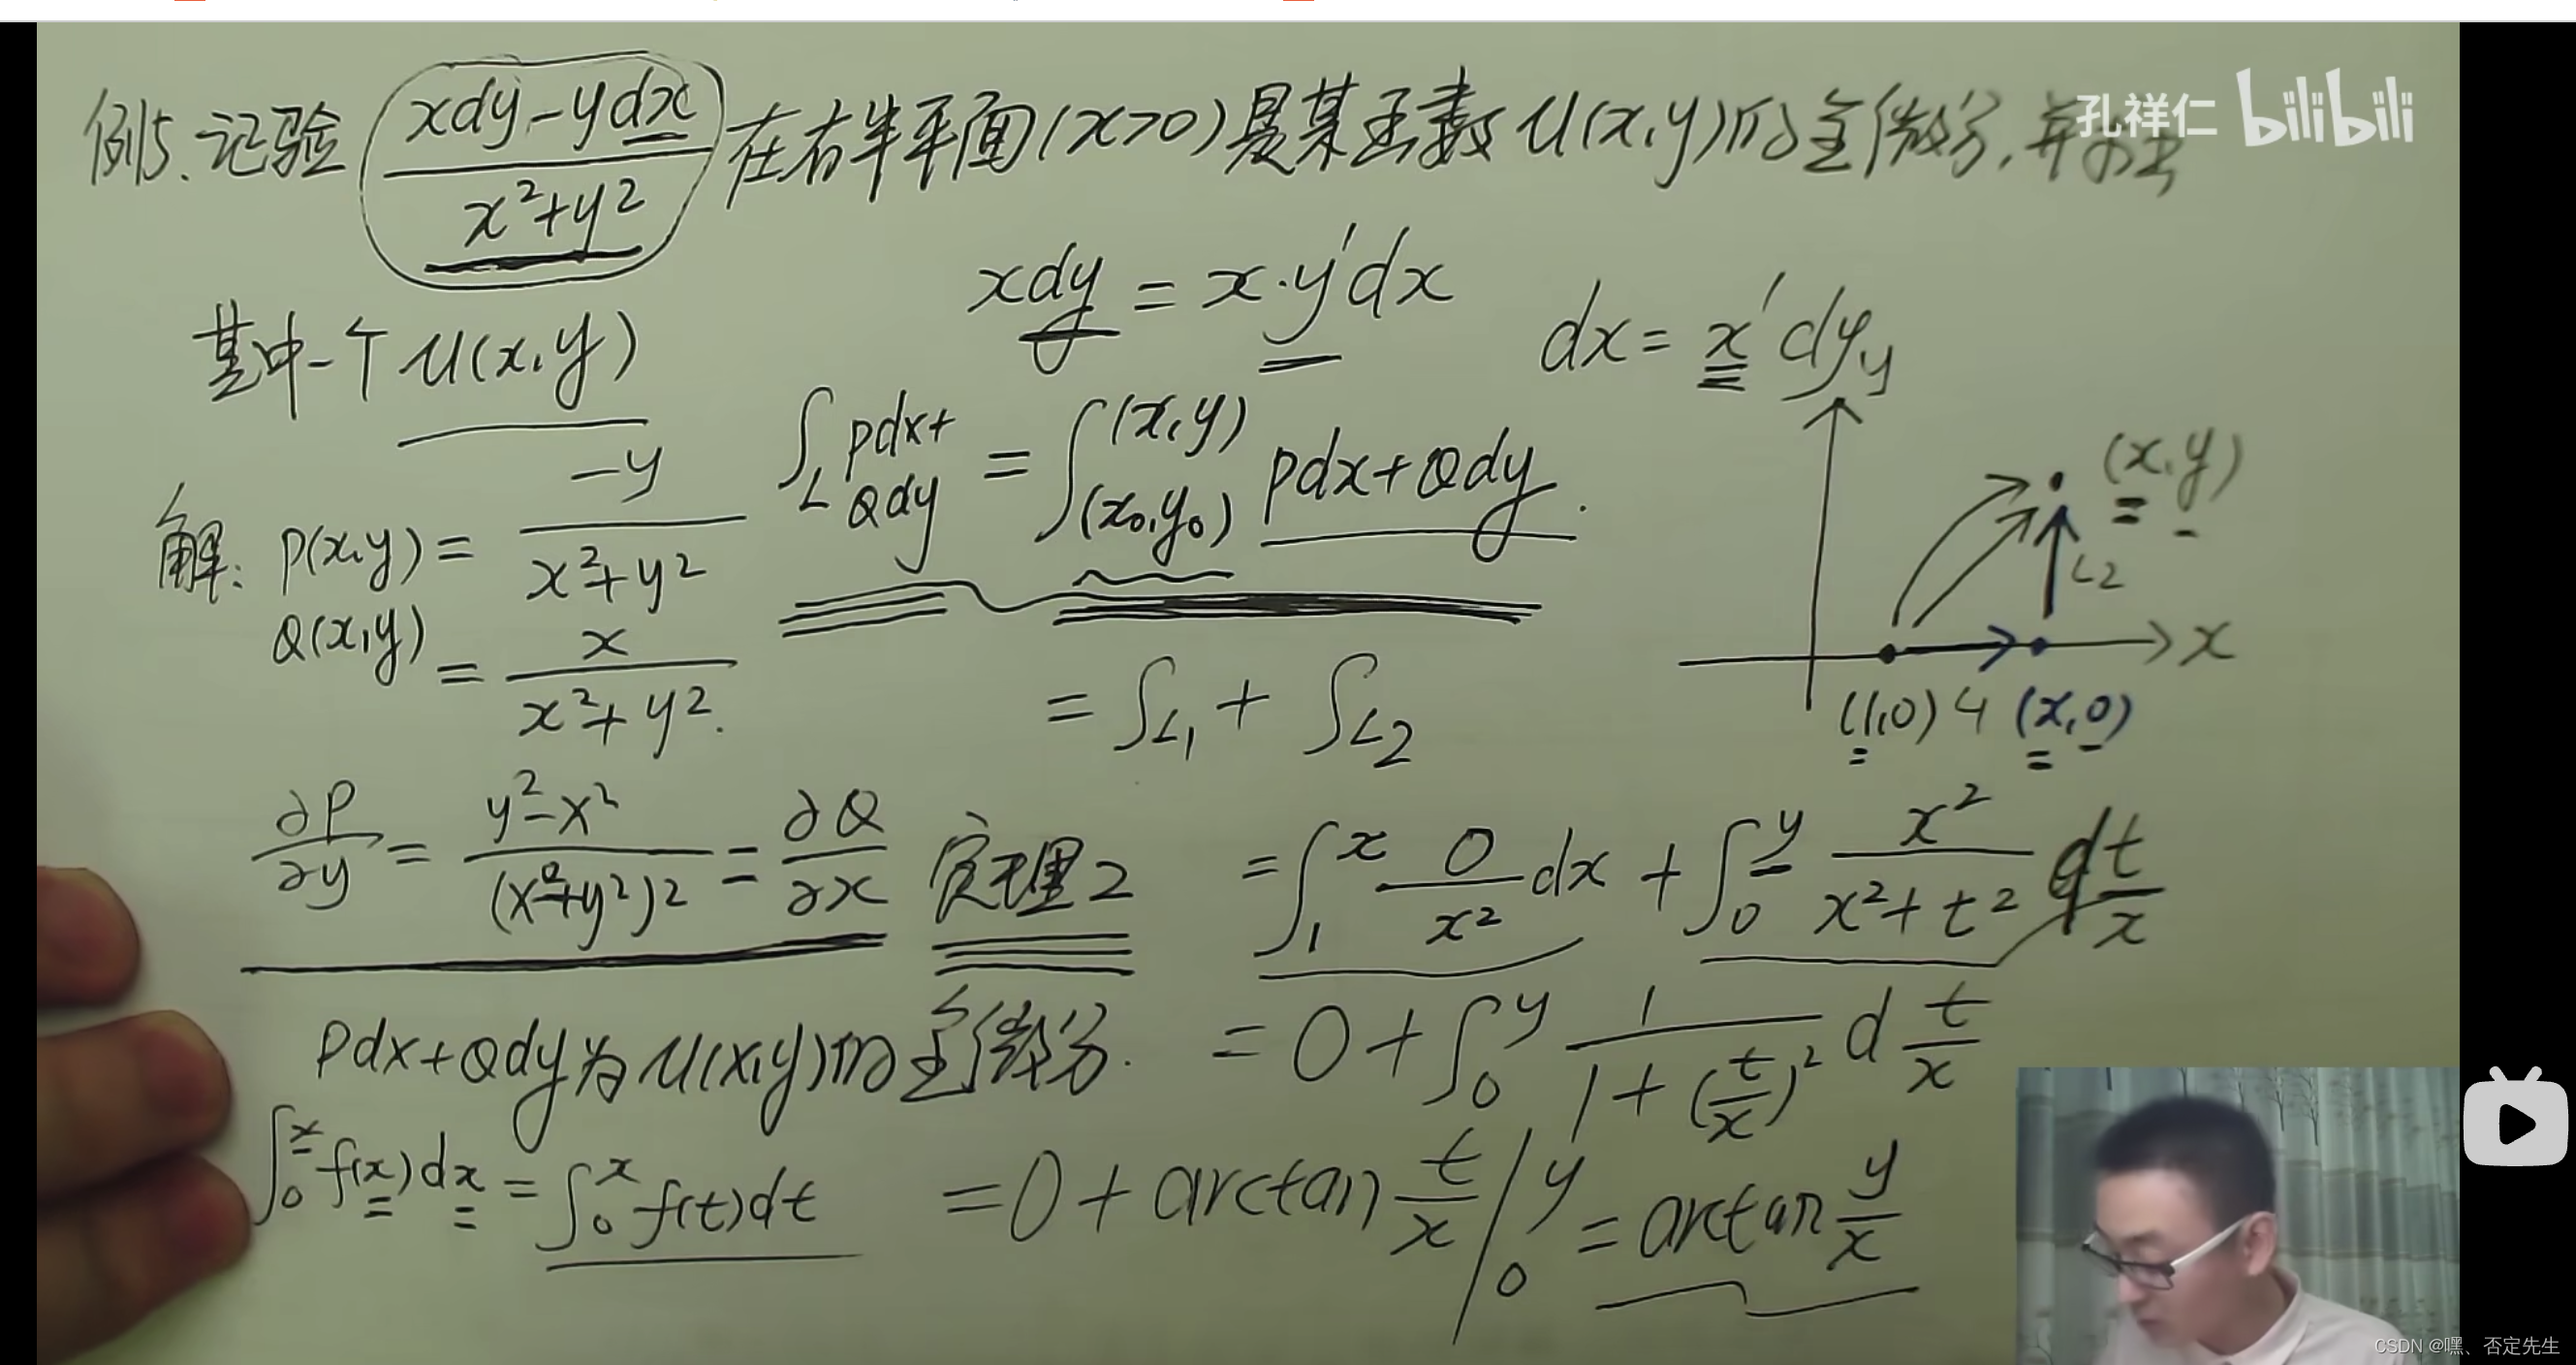 例5. 记验 (xdy-ydx)/(x²+y²) 在右半平面(x>0)是某函数 u(x,y)的全微分,并求出
孔祥仁 bilibili
其中一个 u(x,y)
xdy = x·y'dx
dx = x'dy
解: P(x,y) = -y/(x²+y²)
Q(x,y) = x/(x²+y²).
∫_L Pdx+Qdy = ∫_(x₀,y₀)^(x,y) Pdx+Qdy.
= ∫_L₁ + ∫_L₂
y
(x,y)
L2
x
(1,0) L1 (x,0)
∂P/∂y = (y²-x²)/(x²+y²)² = ∂Q/∂x 定理2
= ∫_1^x 0/x² dx + ∫_0^y x²/(x²+t²) d t/x
Pdx+Qdy为u(x,y)的全微分.
= 0 + ∫_0^y 1/(1+(t/x)²) d t/x
∫_0^x f(x)dx = ∫_0^x f(t)dt
= 0 + arctan t/x |_0^y = arctan y/x
CSDN @嘿、否定先生